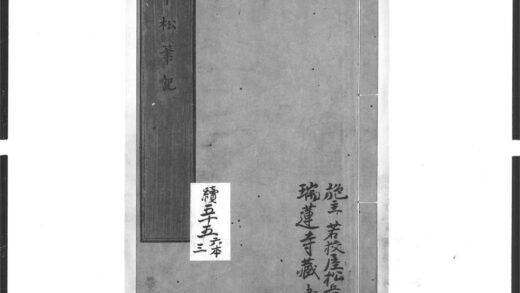 施主若狹屋松兵
瑞蓮寺藏
續五十五
六本
三
松筆記